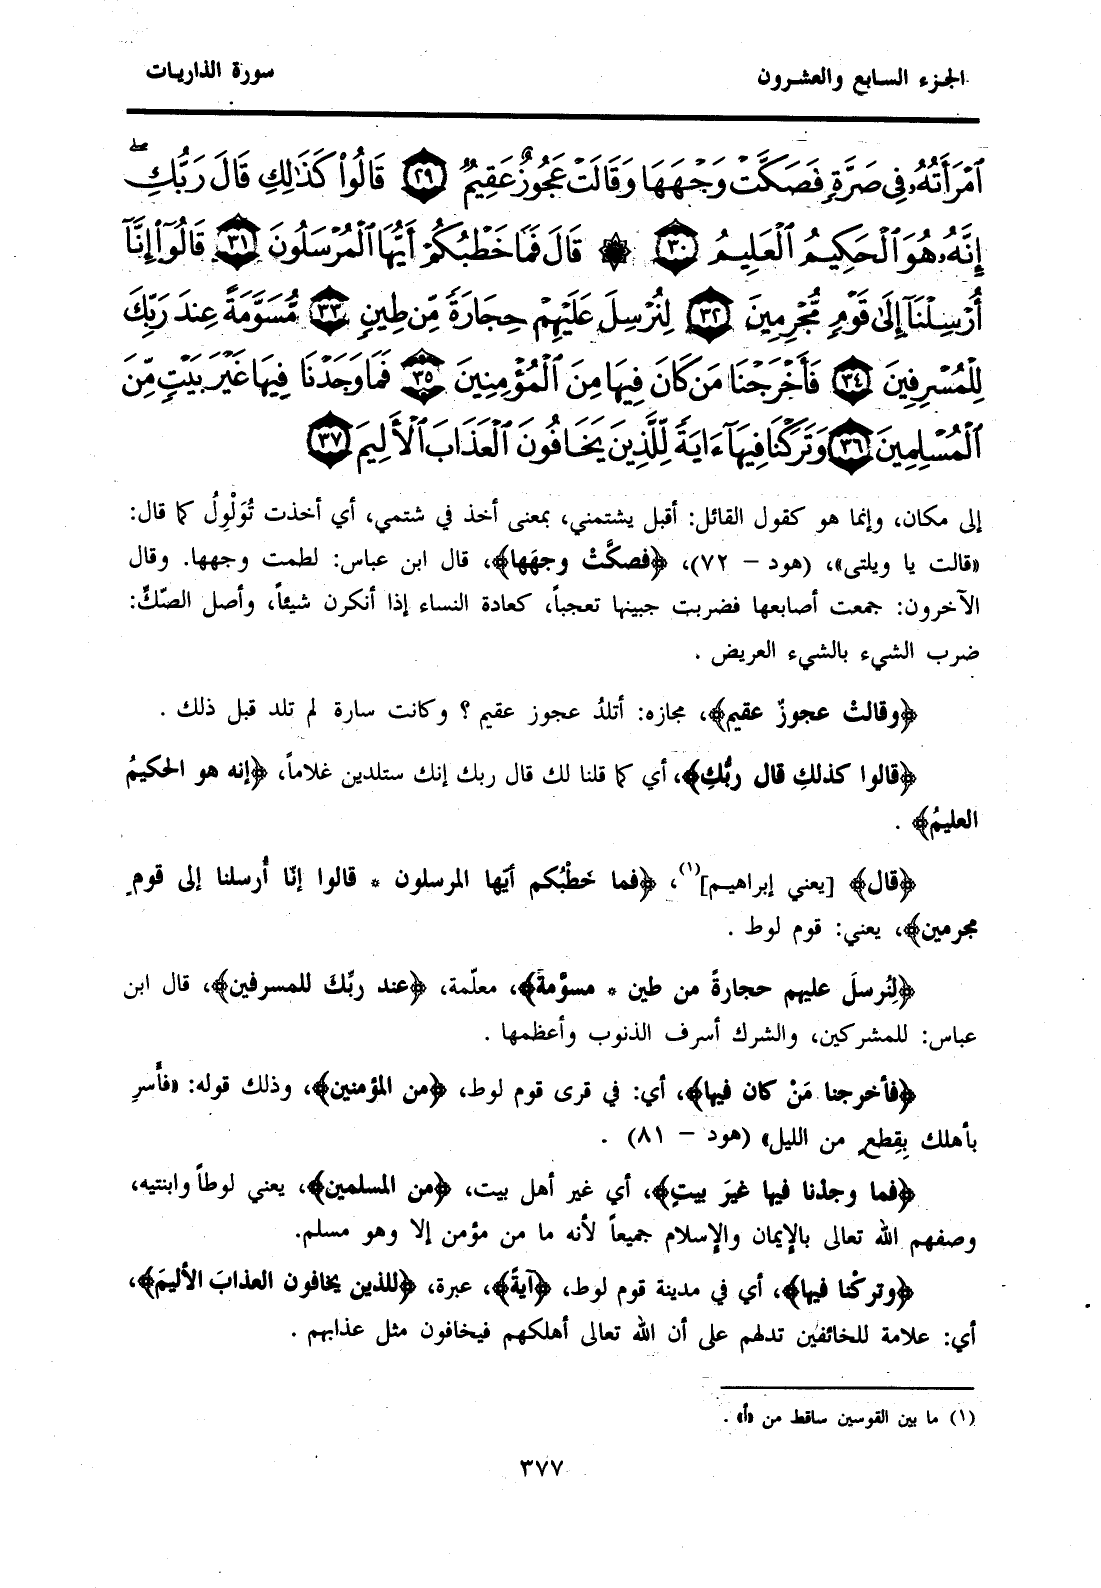 الجزء السابع والعشرون
سورة الذاريات
ٱمْرَأَتُهُۥ فِى صَرَّةٍ فَصَكَّتْ وَجْهَهَا وَقَالَتْ عَجُوزٌ عَقِيمٌ ﴿٢٩﴾ قَالُوا۟ كَذَٰلِكِ قَالَ رَبُّكِ ۖ
إِنَّهُۥ هُوَ ٱلْحَكِيمُ ٱلْعَلِيمُ ﴿٣٠﴾ ۞ قَالَ فَمَا خَطْبُكُمْ أَيُّهَا ٱلْمُرْسَلُونَ ﴿٣١﴾ قَالُوٓا۟ إِنَّآ
أُرْسِلْنَآ إِلَىٰ قَوْمٍ مُّجْرِمِينَ ﴿٣٢﴾ لِنُرْسِلَ عَلَيْهِمْ حِجَارَةً مِّن طِينٍ ﴿٣٣﴾ مُّسَوَّمَةً عِندَ رَبِّكَ
لِلْمُسْرِفِينَ ﴿٣٤﴾ فَأَخْرَجْنَا مَن كَانَ فِيهَا مِنَ ٱلْمُؤْمِنِينَ ﴿٣٥﴾ فَمَا وَجَدْنَا فِيهَا غَيْرَ بَيْتٍ مِّنَ
ٱلْمُسْلِمِينَ ﴿٣٦﴾ وَتَرَكْنَا فِيهَآ ءَايَةً لِّلَّذِينَ يَخَافُونَ ٱلْعَذَابَ ٱلْأَلِيمَ ﴿٣٧﴾
إلى مكان، وإنما هو كقول القائل: أقبل يشتمني، بمعنى أخذ في شتمي، أي أخذت تُوَلْوِلُ كما قال:
«قالت يا ويلتى»، (هود – ٧٢)، ﴿فصكَّتْ وجهَها﴾، قال ابن عباس: لطمت وجهها. وقال
الآخرون: جمعت أصابعها فضربت جبينها تعجباً، كعادة النساء إذا أنكرن شيئاً، وأصل الصّكِّ:
ضرب الشيء بالشيء العريض .
﴿وقالتْ عجوزٌ عقيم﴾، مجازه: أتلدُ عجوز عقيم ؟ وكانت سارة لم تلد قبل ذلك .
﴿قالوا كذلكِ قال ربُّكِ﴾، أي كما قلنا لك قال ربك إنك ستلدين غلاماً، ﴿إنه هو الحكيمُ
العليمُ﴾ .
﴿قال﴾ [يعني إبراهيم](١)، ﴿فما خَطْبُكم أيّها المرسلون * قالوا إنّا أُرسلنا إلى قومٍ
مجرمين﴾، يعني: قوم لوط .
﴿لِنُرسلَ عليهم حجارةً من طين * مسوَّمةً﴾، معلّمة، ﴿عند ربِّكَ للمسرفين﴾، قال ابن
عباس: للمشركين، والشرك أسرف الذنوب وأعظمها .
﴿فأخرجنا مَنْ كان فيها﴾، أي: في قرى قوم لوط، ﴿من المؤمنين﴾، وذلك قوله: «فأَسرِ
بأهلك بِقِطعٍ من الليل» (هود – ٨١) .
﴿فما وجدْنا فيها غيرَ بيتٍ﴾، أي غير أهل بيت، ﴿من المسلمين﴾، يعني لوطاً وابنتيه،
وصفهم الله تعالى بالإيمان والإسلام جميعاً لأنه ما من مؤمن إلا وهو مسلم.
﴿وتركْنا فيها﴾، أي في مدينة قوم لوط، ﴿آيةً﴾، عبرة، ﴿للذين يخافون العذابَ الأليمَ﴾،
أي: علامة للخائفين تدلهم على أن الله تعالى أهلكهم فيخافون مثل عذابهم .
(١) ما بين القوسين ساقط من «أ» .
٣٧٧